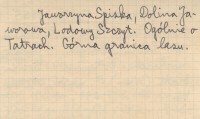 Jaworzyna Spiska, Dolina Ja-
worowa, Lodowy Szczyt. Ogólnie o
Tatrach. Górna granica lasu.